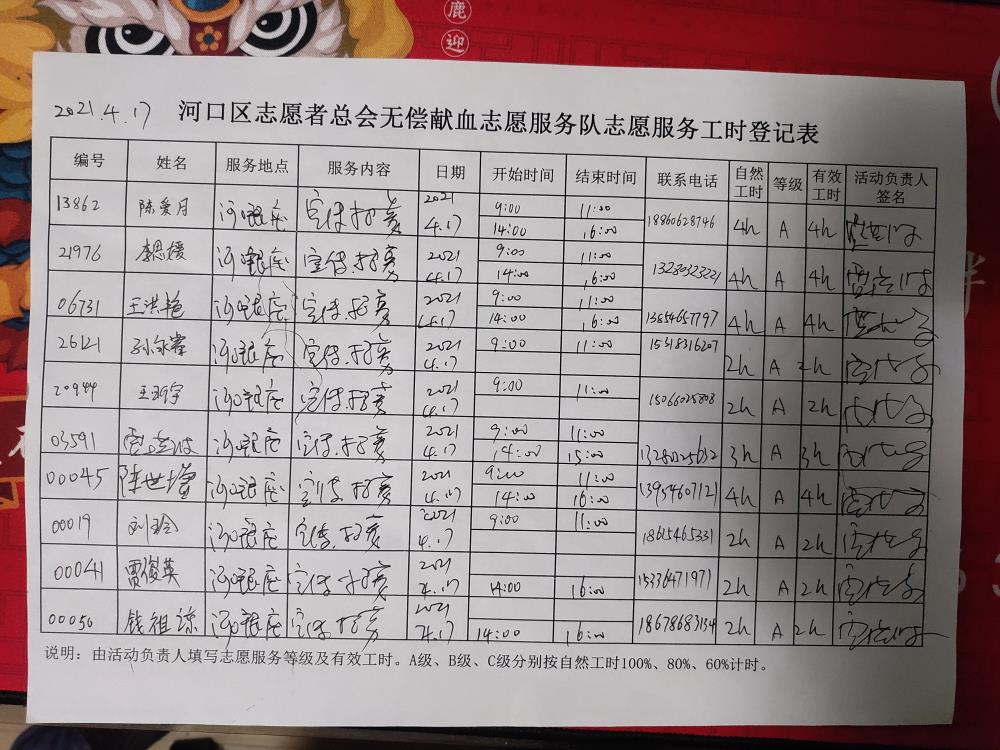 鹿
迎
2021.4.17 河口区志愿者总会无偿献血志愿服务队志愿服务工时登记表
编号 姓名 服务地点 服务内容 日期 开始时间 结束时间 联系电话 自然工时 等级 有效工时 活动负责人签名
13862 陈爱月 河口银座 宣传.招募 2021 4.17 9:00 11:00 14:00 16:00 18860628746 4h A 4h
21976 李思媛 河口银座 宣传.招募 2021 4.17 9:00 11:00 14:00 16:00 13280323221 4h A 4h
06731 王洪艳 河口银座 宣传.招募 2021 4.17 9:00 11:00 14:00 16:00 13854657797 4h A 4h
26121 河口银座 宣传.招募 2021 4.17 9:00 11:00 15318316207 2h A 2h
20944 河口银座 宣传.招募 2021 4.17 9:00 11:00 15066025808 2h A 2h
03591 河口银座 宣传.招募 2021 4.17 9:00 11:00 14:00 15:00 3h A 3h
00045 陈世增 河口银座 宣传.招募 2021 4.17 9:00 11:00 14:00 16:00 13954607121 4h A 4h
00019 河口银座 宣传.招募 2021 4.17 9:00 11:00 18615465331 2h A 2h
00041 贾俊英 河口银座 宣传.招募 2021 4.17 14:00 16:00 15336471971 2h A 2h
00050 钱祖谅 河口银座 宣传.招募 2021 4.17 14:00 16:00 18678683134 2h A 2h
说明：由活动负责人填写志愿服务等级及有效工时。A级、B级、C级分别按自然工时100%、80%、60%计时。